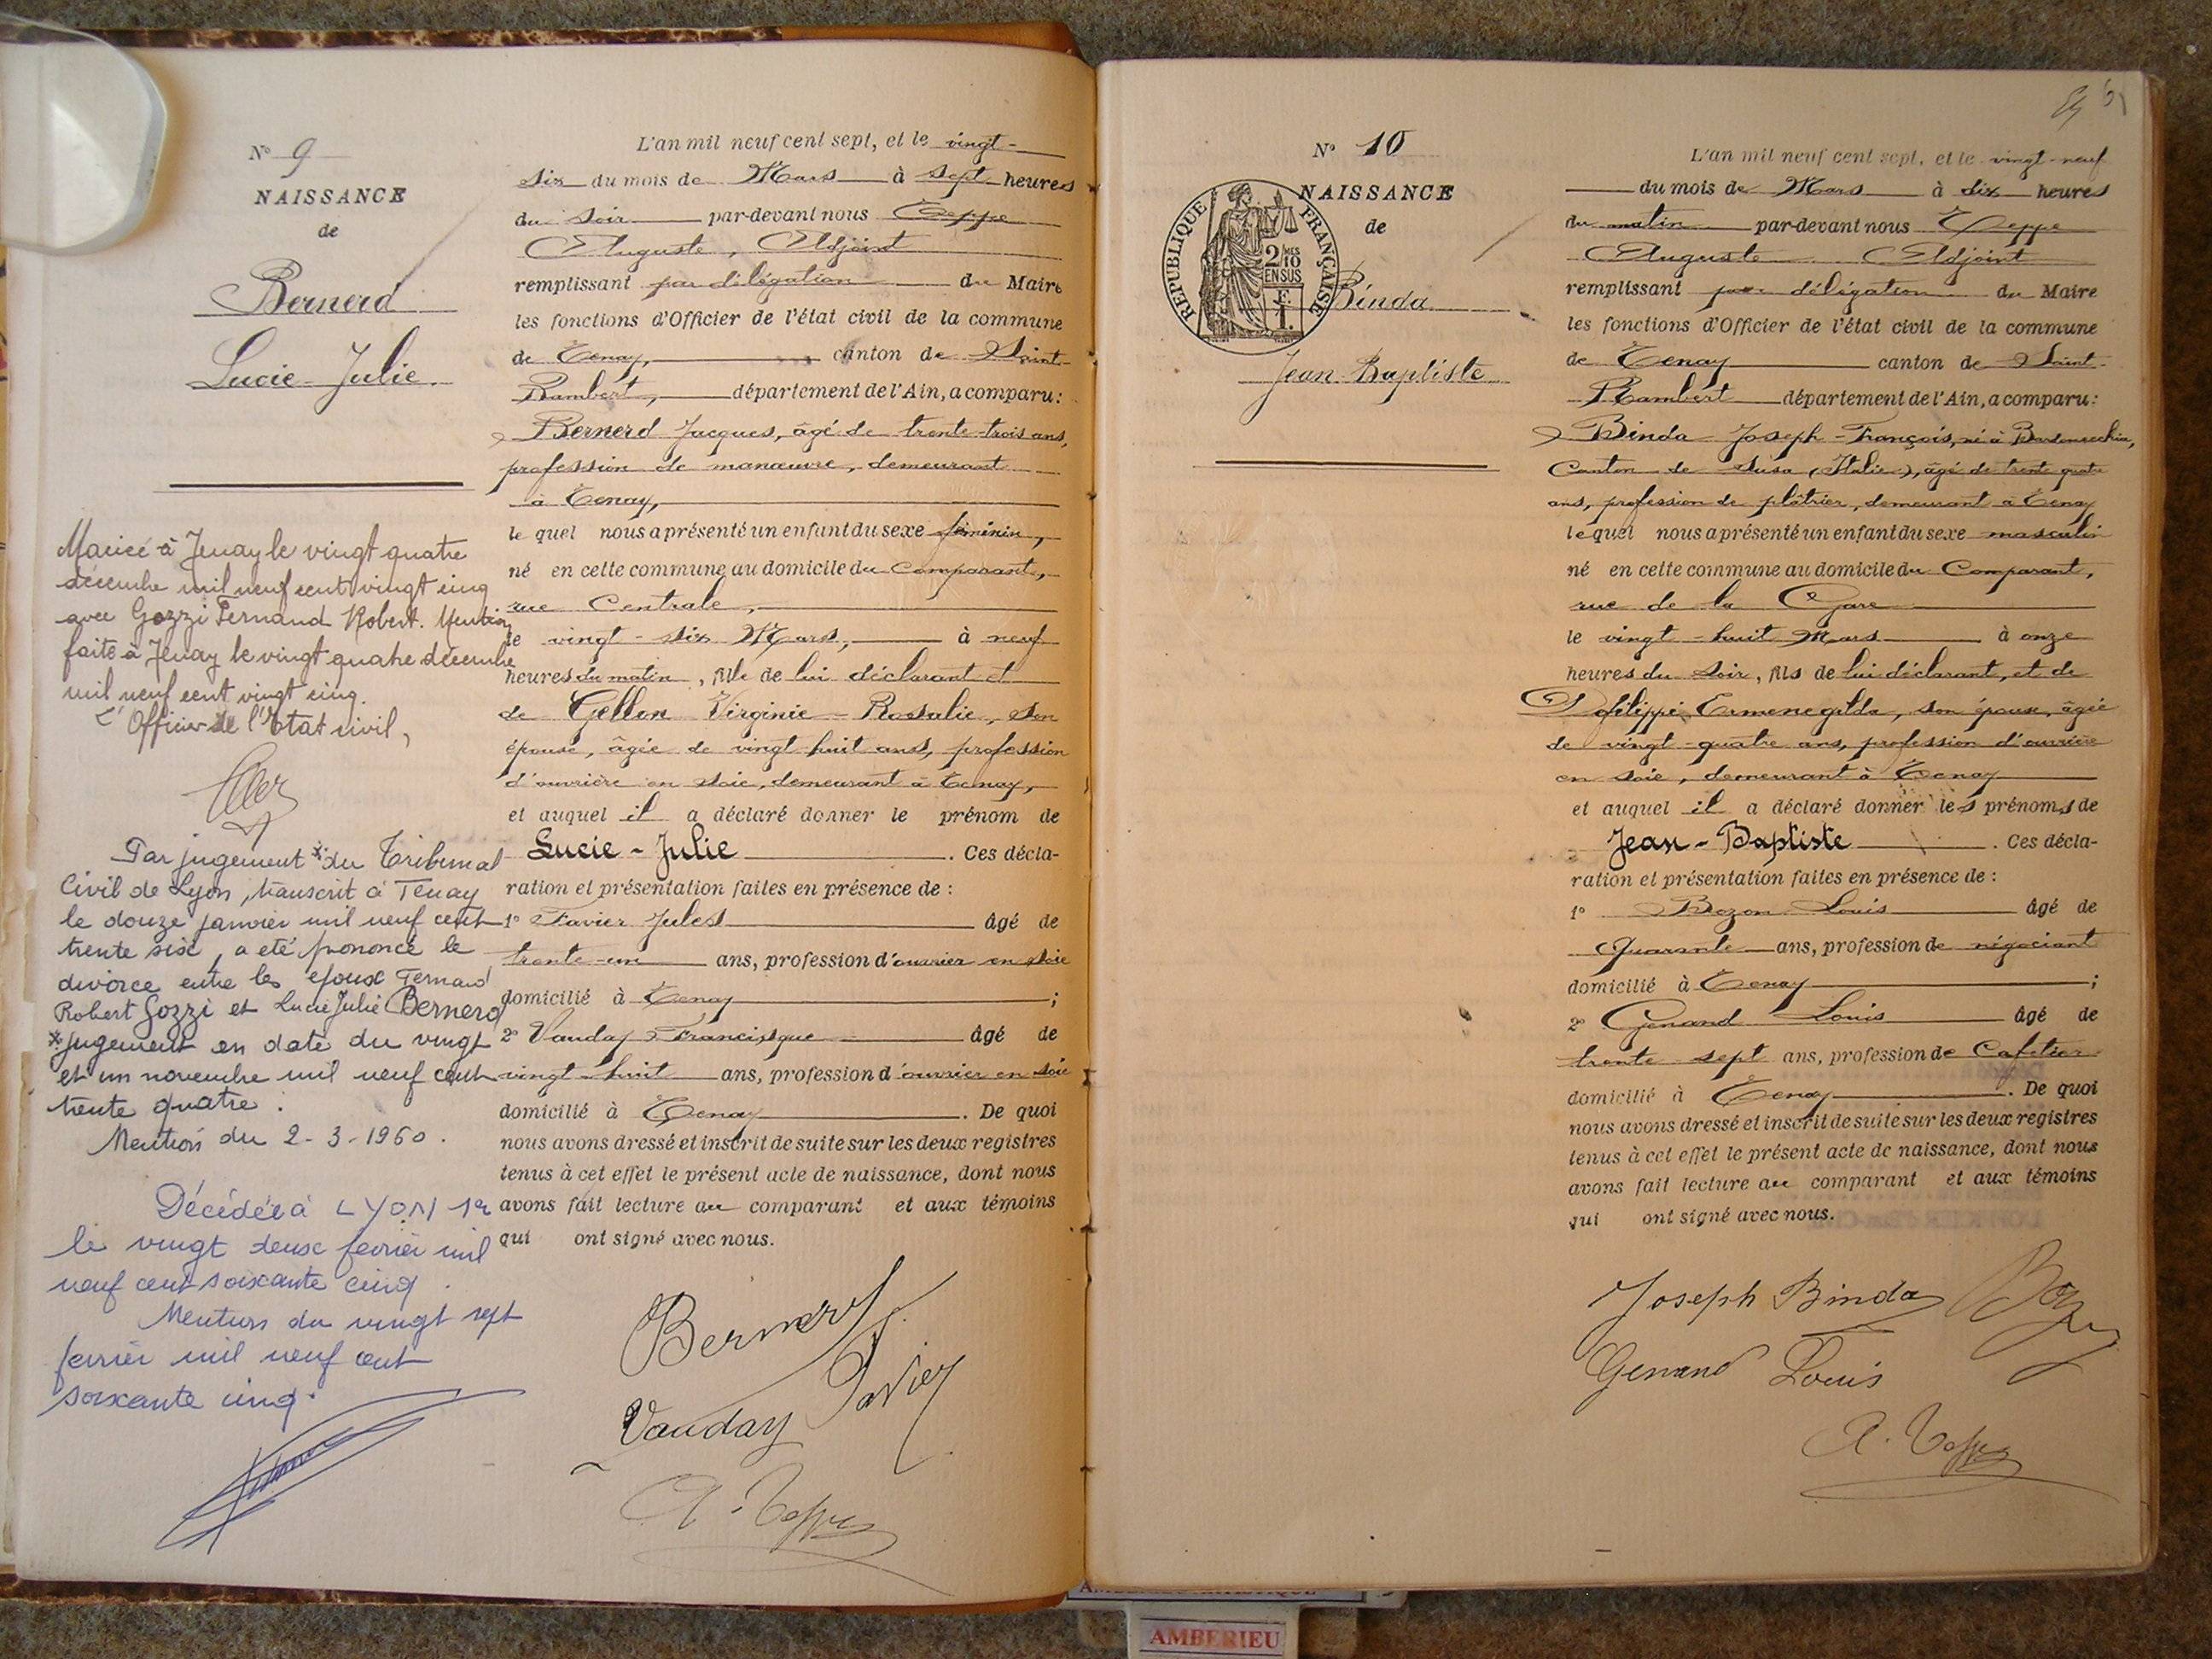 N° 9
NAISSANCE
de
Bernerd
Lucie-Julie.
Marié à Tenay le vingt quatre
décembre mil neuf cent vingt cinq
avec Gozzi Fernand Robert. Mention
faite à Tenay le vingt quatre décembre
mil neuf cent vingt cinq.
L'Officier de l'Etat civil,
Par jugement * du Tribunal
Civil de Lyon, transcrit à Tenay
le douze janvier mil neuf cent
trente six, a eté prononcé le
divorce entre les epoux Fernand
Robert Gozzi et Lucie Julie Bernerd
* jugement en date du vingt
et un novembre mil neuf cent
trente quatre.
Mention du 2-3-1960.
Décédée à LYON 1er
le vingt deux fevrier mil
neuf cent soixante cinq.
Mention du vingt sept
fevrier mil neuf cent
soixante cinq.
L'an mil neuf cent sept, et le vingt-
six du mois de Mars à sept heures
du soir par-devant nous Teppe
Auguste, Adjoint
remplissant par délégation du Maire
les fonctions d'Officier de l'état civil de la commune
de Tenay, canton de Saint-
Rambert, département de l'Ain, a comparu:
Bernerd Jacques, âgé de trente-trois ans,
profession de manœuvre, demeurant
à Tenay,
le quel nous a présenté un enfant du sexe féminin,
né en cette commune au domicile du Comparant,
rue Centrale,
le vingt-six Mars, à neuf
heures du matin, fille de lui déclarant et
de Gellon Virginie-Rosalie, son
épouse, âgée de vingt-huit ans, profession
d'ouvrière en soie, demeurant à Tenay,
et auquel il a déclaré donner le prénom de
Lucie-Julie. Ces décla-
ration et présentation faites en présence de :
1° Favier Jules âgé de
trente-un ans, profession d'ouvrier en soie
domicilié à Tenay ;
2° Vauday Francisque âgé de
vingt-huit ans, profession d'ouvrier en soie
domicilié à Tenay. De quoi
nous avons dressé et inscrit de suite sur les deux registres
tenus à cet effet le présent acte de naissance, dont nous
avons fait lecture au comparant et aux témoins
qui ont signé avec nous.
Bernerd
Vauday Favier
A. Teppe
N° 10
NAISSANCE
de
Binda
Jean-Baptiste
REPUBLIQUE FRANÇAISE
2/10 MES
EN SUS
F.
1.
L'an mil neuf cent sept, et le vingt-neuf
du mois de Mars à six heures
du matin par-devant nous Teppe
Auguste Adjoint
remplissant par délégation du Maire
les fonctions d'Officier de l'état civil de la commune
de Tenay canton de Saint-
Rambert département de l'Ain, a comparu:
Binda Joseph-François, né à Bardonecchia,
Canton de Susa (Italie), âgé de trente quatre
ans, profession de plâtrier, demeurant à Tenay
lequel nous a présenté un enfant du sexe masculin
né en cette commune au domicile du Comparant,
rue de la Gare
le vingt-huit Mars à onze
heures du soir, fils de lui déclarant, et de
Ermenegilda, son épouse, âgée
de vingt-quatre ans, profession d'ouvrière
en soie, demeurant à Tenay
et auquel il a déclaré donner les prénoms de
Jean-Baptiste. Ces décla-
ration et présentation faites en présence de :
1° Bozon Louis âgé de
Quarante ans, profession de négociant
domicilié à Tenay ;
2° Genand Louis âgé de
trente sept ans, profession de Cafetier
domicilié à Tenay. De quoi
nous avons dressé et inscrit de suite sur les deux registres
tenus à cet effet le présent acte de naissance, dont nous
avons fait lecture au comparant et aux témoins
qui ont signé avec nous.
Joseph Binda
Genand Louis
A. Teppe
AMBERIEU